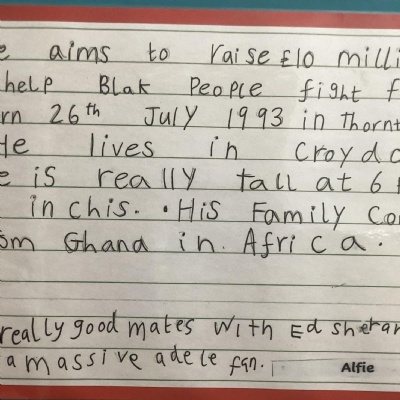 e aims to raise £10 milli
help Blak People fight f
rn 26th July 1993 in Thornt
He lives in Croydo
e is really tall at 6 f
inchis. • His Family Co
om Ghana in. Africa.
really good mates with Ed sheran
a massive adele fan.
Alfie